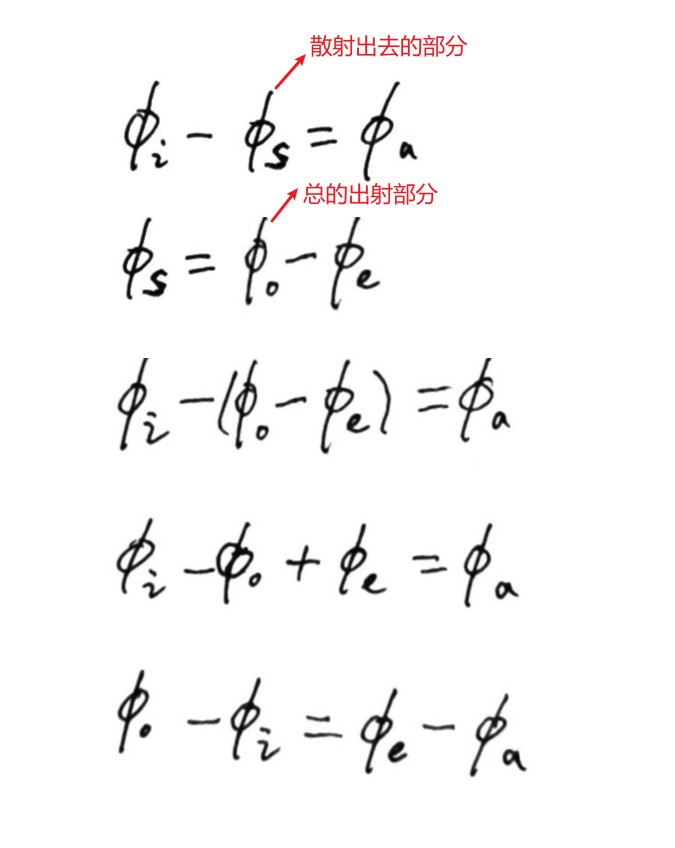 散射出去的部分
ϕi − ϕs = ϕa
总的出射部分
ϕs = ϕo − ϕe
ϕi − (ϕo − ϕe) = ϕa
ϕi − ϕo + ϕe = ϕa
ϕo − ϕi = ϕe − ϕa